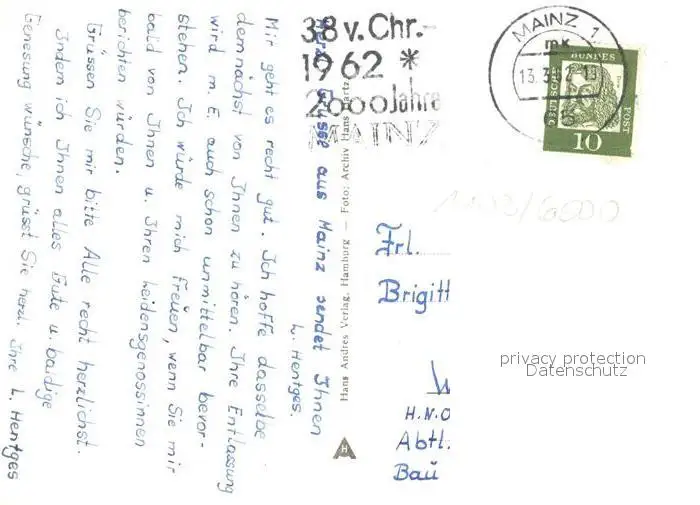 Herzl. Grüsse aus Mainz sendet Ihnen
L. Hentges.
Mir geht es recht gut. Ich hoffe dasselbe
demnächst von Ihnen zu hören. Ihre Entlassung
wird m. E. auch schon unmittelbar bevor-
stehen. Ich würde mich freuen, wenn Sie mir
bald von Ihnen u. Ihren Leidensgenossinnen
berichten würden.
Grüssen Sie mir bitte Alle recht herzlichst.
Indem ich Ihnen alles Gute u. baldige
Genesung wünsche, grüsst Sie herzl. Ihre L. Hentges
38 v. Chr.-
1962 *
2000 Jahre
MAINZ
Hans Andres Verlag, Hamburg — Foto: Archiv Hans Hartz
H
MAINZ 1
mk
13.3.62-13
DEUTSCHE
BUNDES
POST
10
1103/6000
Frl.
Brigitt
H.N.O
Abtl.
Bau
privacy protection
Datenschutz